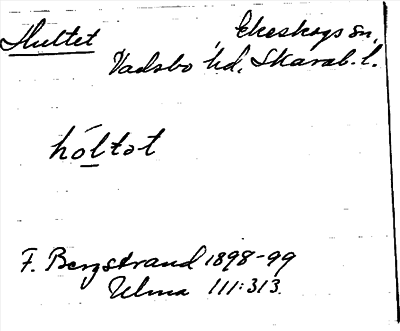 Huttet Ekeskogs sn,
Vadsbo hd. Skarab. l.
hóltət
F. Bergstrand 1898-99
Ulma 111:313.